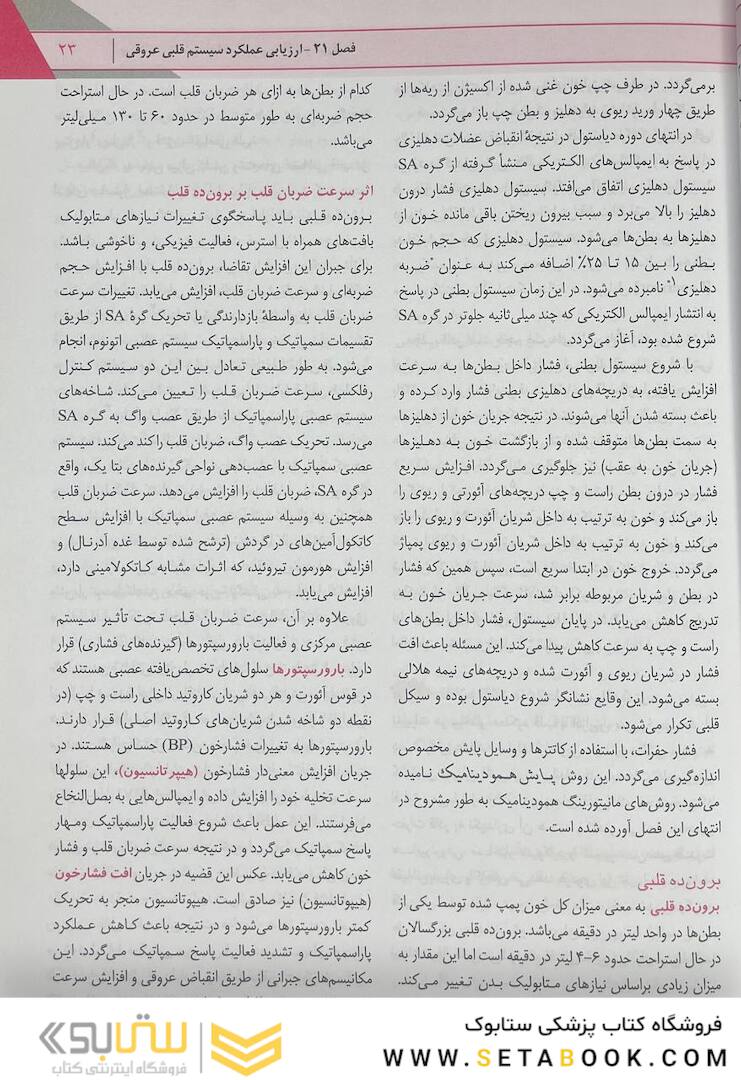 فصل ۲۱ -ارزیابی عملکرد سیستم قلبی عروقی | ۲۳
برمی‌گردد. در طرف چپ خون غنی شده از اکسیژن از ریه‌ها از
طریق چهار ورید ریوی به دهلیز و بطن چپ باز می‌گردد.
در انتهای دوره دیاستول در نتیجهٔ انقباض عضلات دهلیزی
در پاسخ به ایمپالس‌های الکتریکی منشأ گرفته از گره SA
سیستول دهلیزی اتفاق می‌افتد. سیستول دهلیزی فشار درون
دهلیز را بالا می‌برد و سبب بیرون ریختن باقی مانده خون از
دهلیزها به بطن‌ها می‌شود. سیستول دهلیزی که حجم خون
بطنی را بین ۱۵ تا ۲۵٪ اضافه می‌کند به عنوان "ضربه
دهلیزی۱" نامبرده می‌شود. در این زمان سیستول بطنی در پاسخ
به انتشار ایمپالس الکتریکی که چند میلی‌ثانیه جلوتر در گره SA
شروع شده بود، آغاز می‌گردد.
با شروع سیستول بطنی، فشار داخل بطن‌ها به سرعت
افزایش یافته، به دریچه‌های دهلیزی بطنی فشار وارد کرده و
باعث بسته شدن آنها می‌شوند. در نتیجه جریان خون از دهلیزها
به سمت بطن‌ها متوقف شده و از بازگشت خون به دهلیزها
(جریان خون به عقب) نیز جلوگیری می‌گردد. افزایش سریع
فشار در درون بطن راست و چپ دریچه‌های آئورتی و ریوی را
باز می‌کند و خون به ترتیب به داخل شریان آئورت و ریوی را باز
می‌کند و خون به ترتیب به داخل شریان آئورت و ریوی پمپاژ
می‌گردد. خروج خون در ابتدا سریع است، سپس همین که فشار
در بطن و شریان مربوطه برابر شد، سرعت جریان خون به
تدریج کاهش می‌یابد. در پایان سیستول، فشار داخل بطن‌های
راست و چپ به سرعت کاهش پیدا می‌کند. این مسئله باعث افت
فشار در شریان ریوی و آئورت شده و دریچه‌های نیمه هلالی
بسته می‌شود. این وقایع نشانگر شروع دیاستول بوده و سیکل
قلبی تکرار می‌شود.
فشار حفرات، با استفاده از کاتترها و وسایل پایش مخصوص
اندازه‌گیری می‌گردد. این روش پایش همودینامیک نامیده
می‌شود. روش‌های مانیتورینگ همودینامیک به طور مشروح در
انتهای این فصل آورده شده است.
برون‌ده قلبی
برون‌ده قلبی به معنی میزان کل خون پمپ شده توسط یکی از
بطن‌ها در واحد لیتر در دقیقه می‌باشد. برون‌ده قلبی بزرگسالان
در حال استراحت حدود ۶-۴ لیتر در دقیقه است اما این مقدار به
میزان زیادی براساس نیازهای متابولیک بدن تغییر می‌کند.
کدام از بطن‌ها به ازای هر ضربان قلب است. در حال استراحت
حجم ضربه‌ای به طور متوسط در حدود ۶۰ تا ۱۳۰ میلی‌لیتر
می‌باشد.
اثر سرعت ضربان قلب بر برون‌ده قلب
برون‌ده قلبی باید پاسخگوی تغییرات نیازهای متابولیک
بافت‌های همراه با استرس، فعالیت فیزیکی، و ناخوشی باشد.
برای جبران این افزایش تقاضا، برون‌ده قلب با افزایش حجم
ضربه‌ای و سرعت ضربان قلب، افزایش می‌یابد. تغییرات سرعت
ضربان قلب به واسطهٔ بازدارندگی یا تحریک گرهٔ SA از طریق
تقسیمات سمپاتیک و پاراسمپاتیک سیستم عصبی اتونوم، انجام
می‌شود. به طور طبیعی تعادل بین این دو سیستم کنترل
رفلکسی، سرعت ضربان قلب را تعیین می‌کند. شاخه‌های
سیستم عصبی پاراسمپاتیک از طریق عصب واگ به گره SA
می‌رسد. تحریک عصب واگ، ضربان قلب را کند می‌کند. سیستم
عصبی سمپاتیک با عصب‌دهی نواحی گیرنده‌های بتا یک، واقع
در گره SA، ضربان قلب را افزایش می‌دهد. سرعت ضربان قلب
همچنین به وسیله سیستم عصبی سمپاتیک با افزایش سطح
کاتکول‌آمین‌های در گردش (ترشح شده توسط غده آدرنال) و
افزایش هورمون تیروئید، که اثرات مشابه کاتکولامینی دارد،
افزایش می‌یابد.
علاوه بر آن، سرعت ضربان قلب تحت تأثیر سیستم
عصبی مرکزی و فعالیت بارورسپتورها (گیرنده‌های فشاری) قرار
دارد. بارورسپتورها سلول‌های تخصص‌یافته عصبی هستند که
در قوس آئورت و هر دو شریان کاروتید داخلی راست و چپ (در
نقطه دو شاخه شدن شریان‌های کاروتید اصلی) قرار دارند.
بارورسپتورها به تغییرات فشارخون (BP) حساس هستند. در
جریان افزایش معنی‌دار فشارخون (هیپرتانسیون)، این سلولها
سرعت تخلیه خود را افزایش داده و ایمپالس‌هایی به بصل‌النخاع
می‌فرستند. این عمل باعث شروع فعالیت پاراسمپاتیک ومهار
پاسخ سمپاتیک می‌گردد و در نتیجه سرعت ضربان قلب و فشار
خون کاهش می‌یابد. عکس این قضیه در جریان افت فشارخون
(هیپوتانسیون) نیز صادق است. هیپوتانسیون منجر به تحریک
کمتر بارورسپتورها می‌شود و در نتیجه باعث کاهش عملکرد
پاراسمپاتیک و تشدید فعالیت پاسخ سمپاتیک می‌گردد. این
مکانیسم‌های جبرانی از طریق انقباض عروقی و افزایش سرعت
فروشگاه کتاب پزشکی ستابوک
WWW.SETABOOK.COM
ستابوک
فروشگاه اینترنتی کتاب